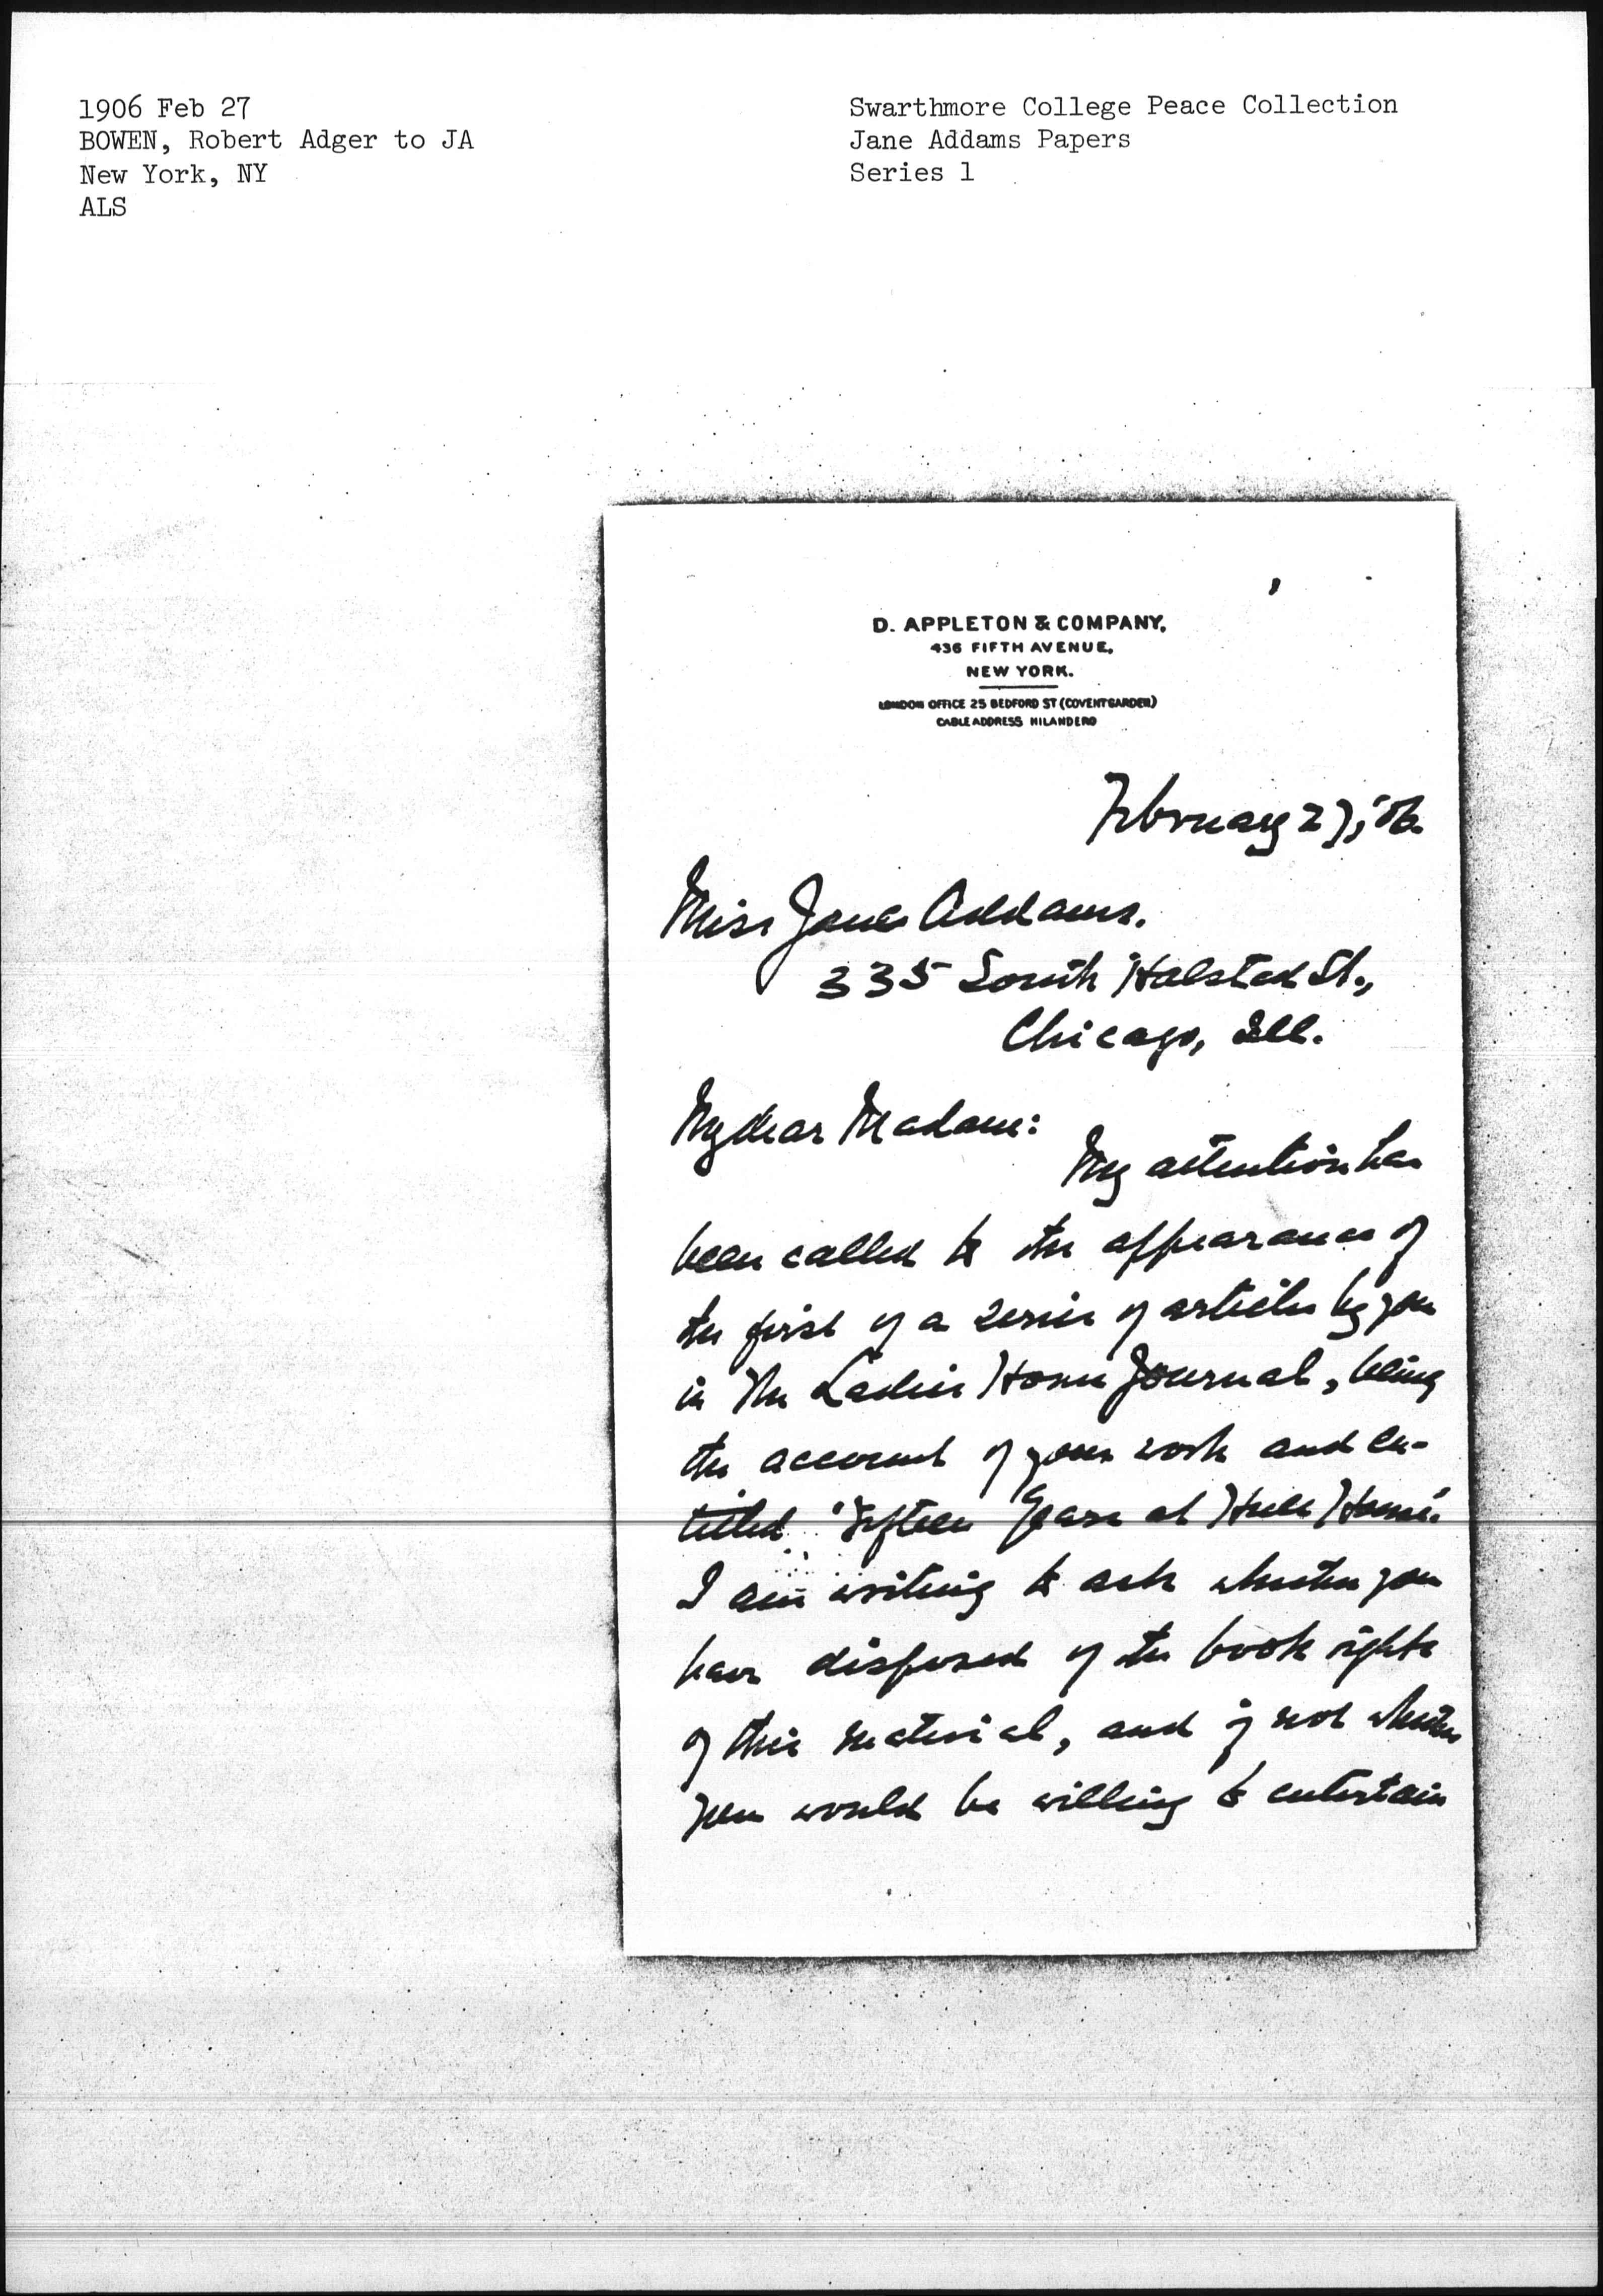 1906 Feb 27
BOWEN, Robert Adger to JA
New York, NY
ALS
Swarthmore College Peace Collection
Jane Addams Papers
Series 1
D. APPLETON & COMPANY,
436 FIFTH AVENUE,
NEW YORK.
LONDON OFFICE 25 BEDFORD ST (COVENT GARDEN)
CABLE ADDRESS HILANDERO
February 27, '06.
Miss Jane Addams.
335 South Halsted St.,
Chicago, Ill.
My dear Madam:
My attention has
been called to the appearance of
the first of a series of articles by you
in The Ladies Home Journal, being
the account of your work and en-
titled "Fifteen Years at Hull House".
I am writing to ask whether you
have disposed of the book rights
of this material, and if not whether
you would be willing to entertain